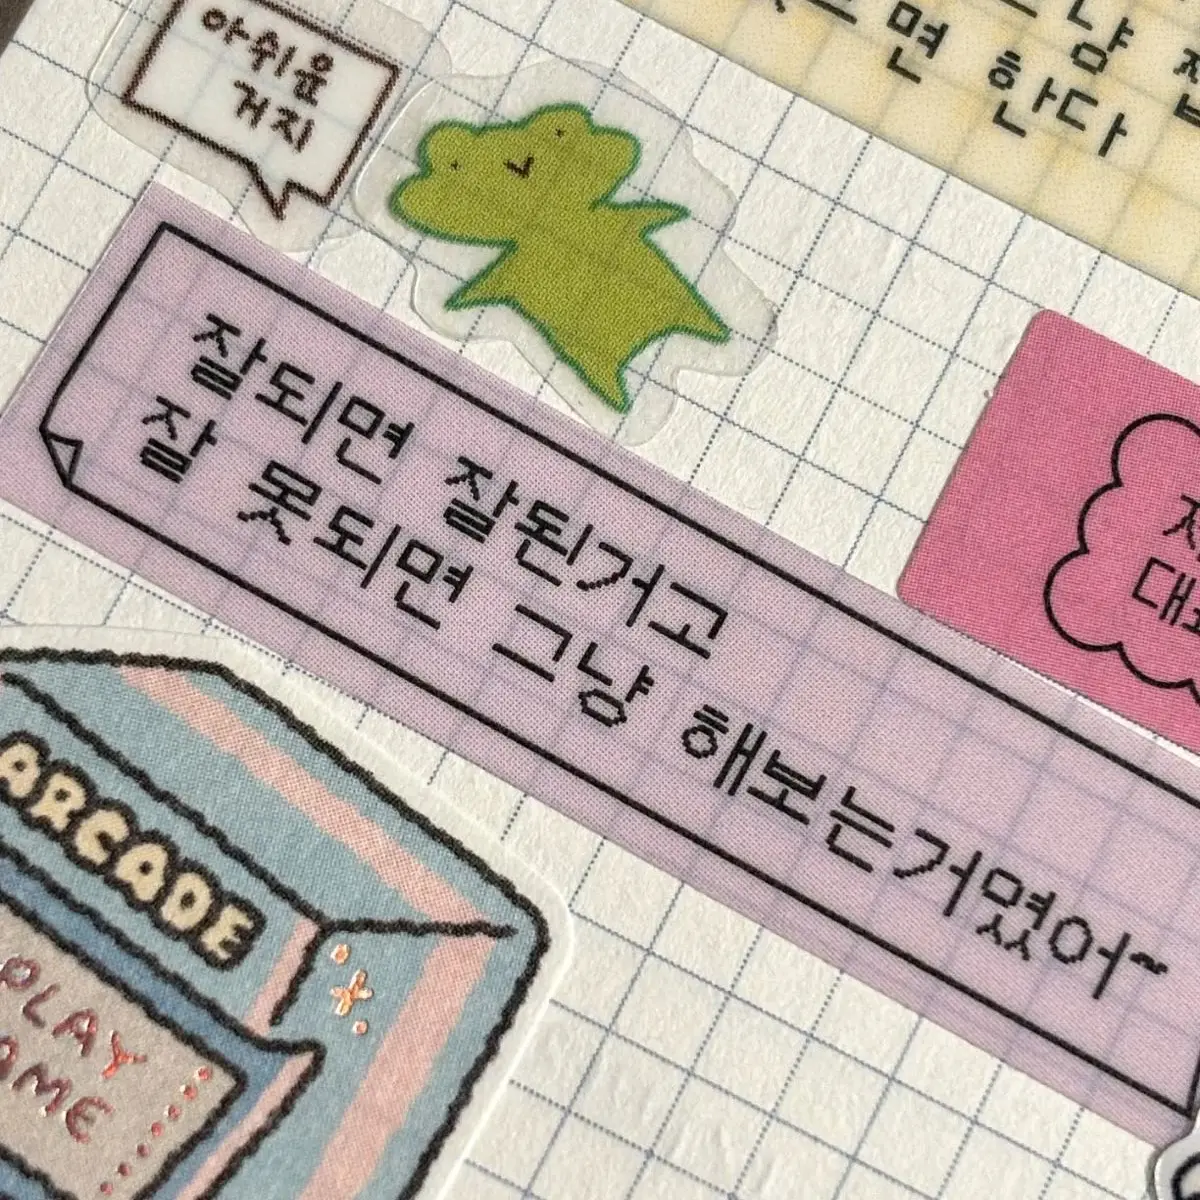 아쉬운
거지
면 한다
잘되면 잘된거고
잘 못되면 그냥 해보는거였어~
ARCADE
PLAY